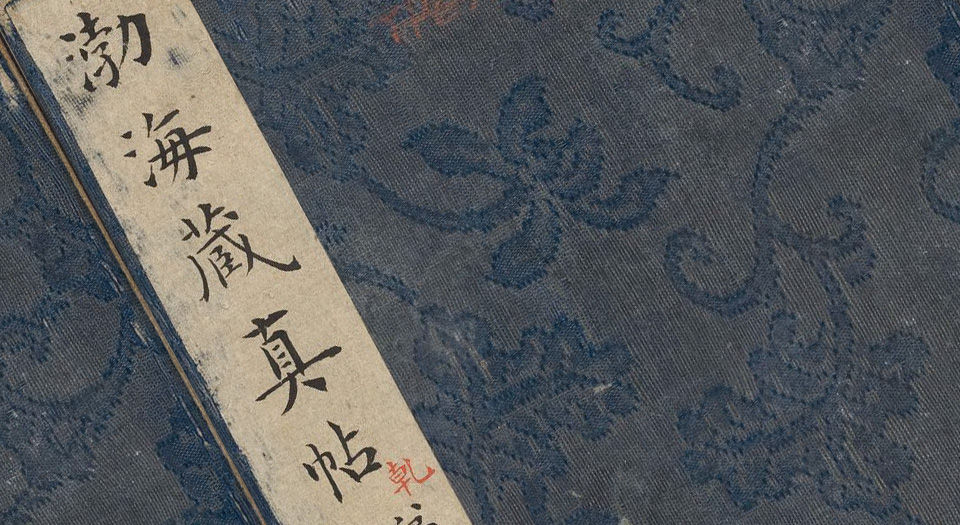 渤海藏真帖
乾